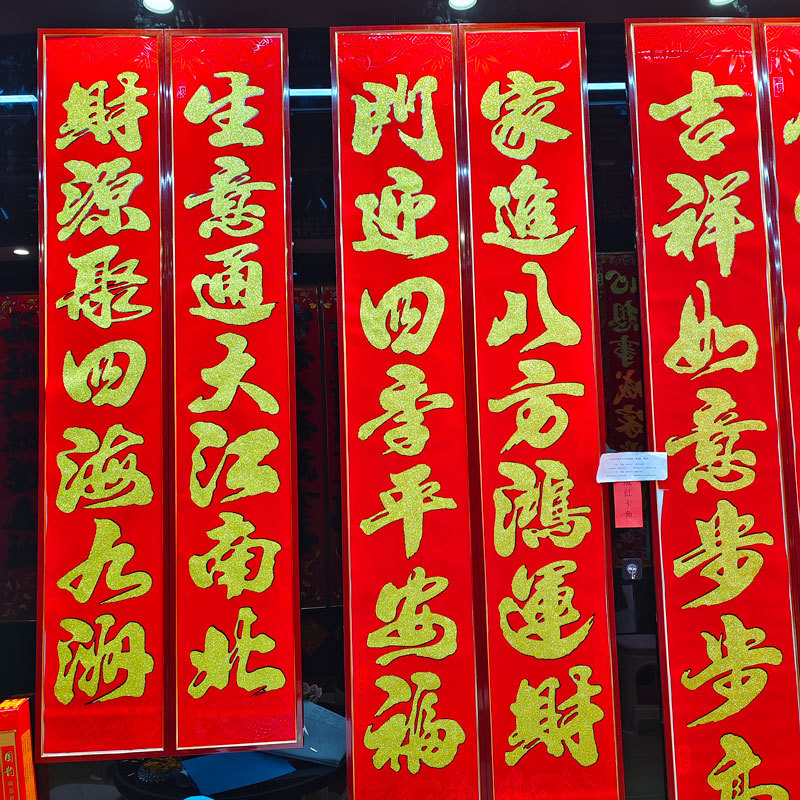 吉祥如意步步高
心想事成
家進八方鴻運財
門迎四季平安福
生意通大江南北
財源聚四海九洲